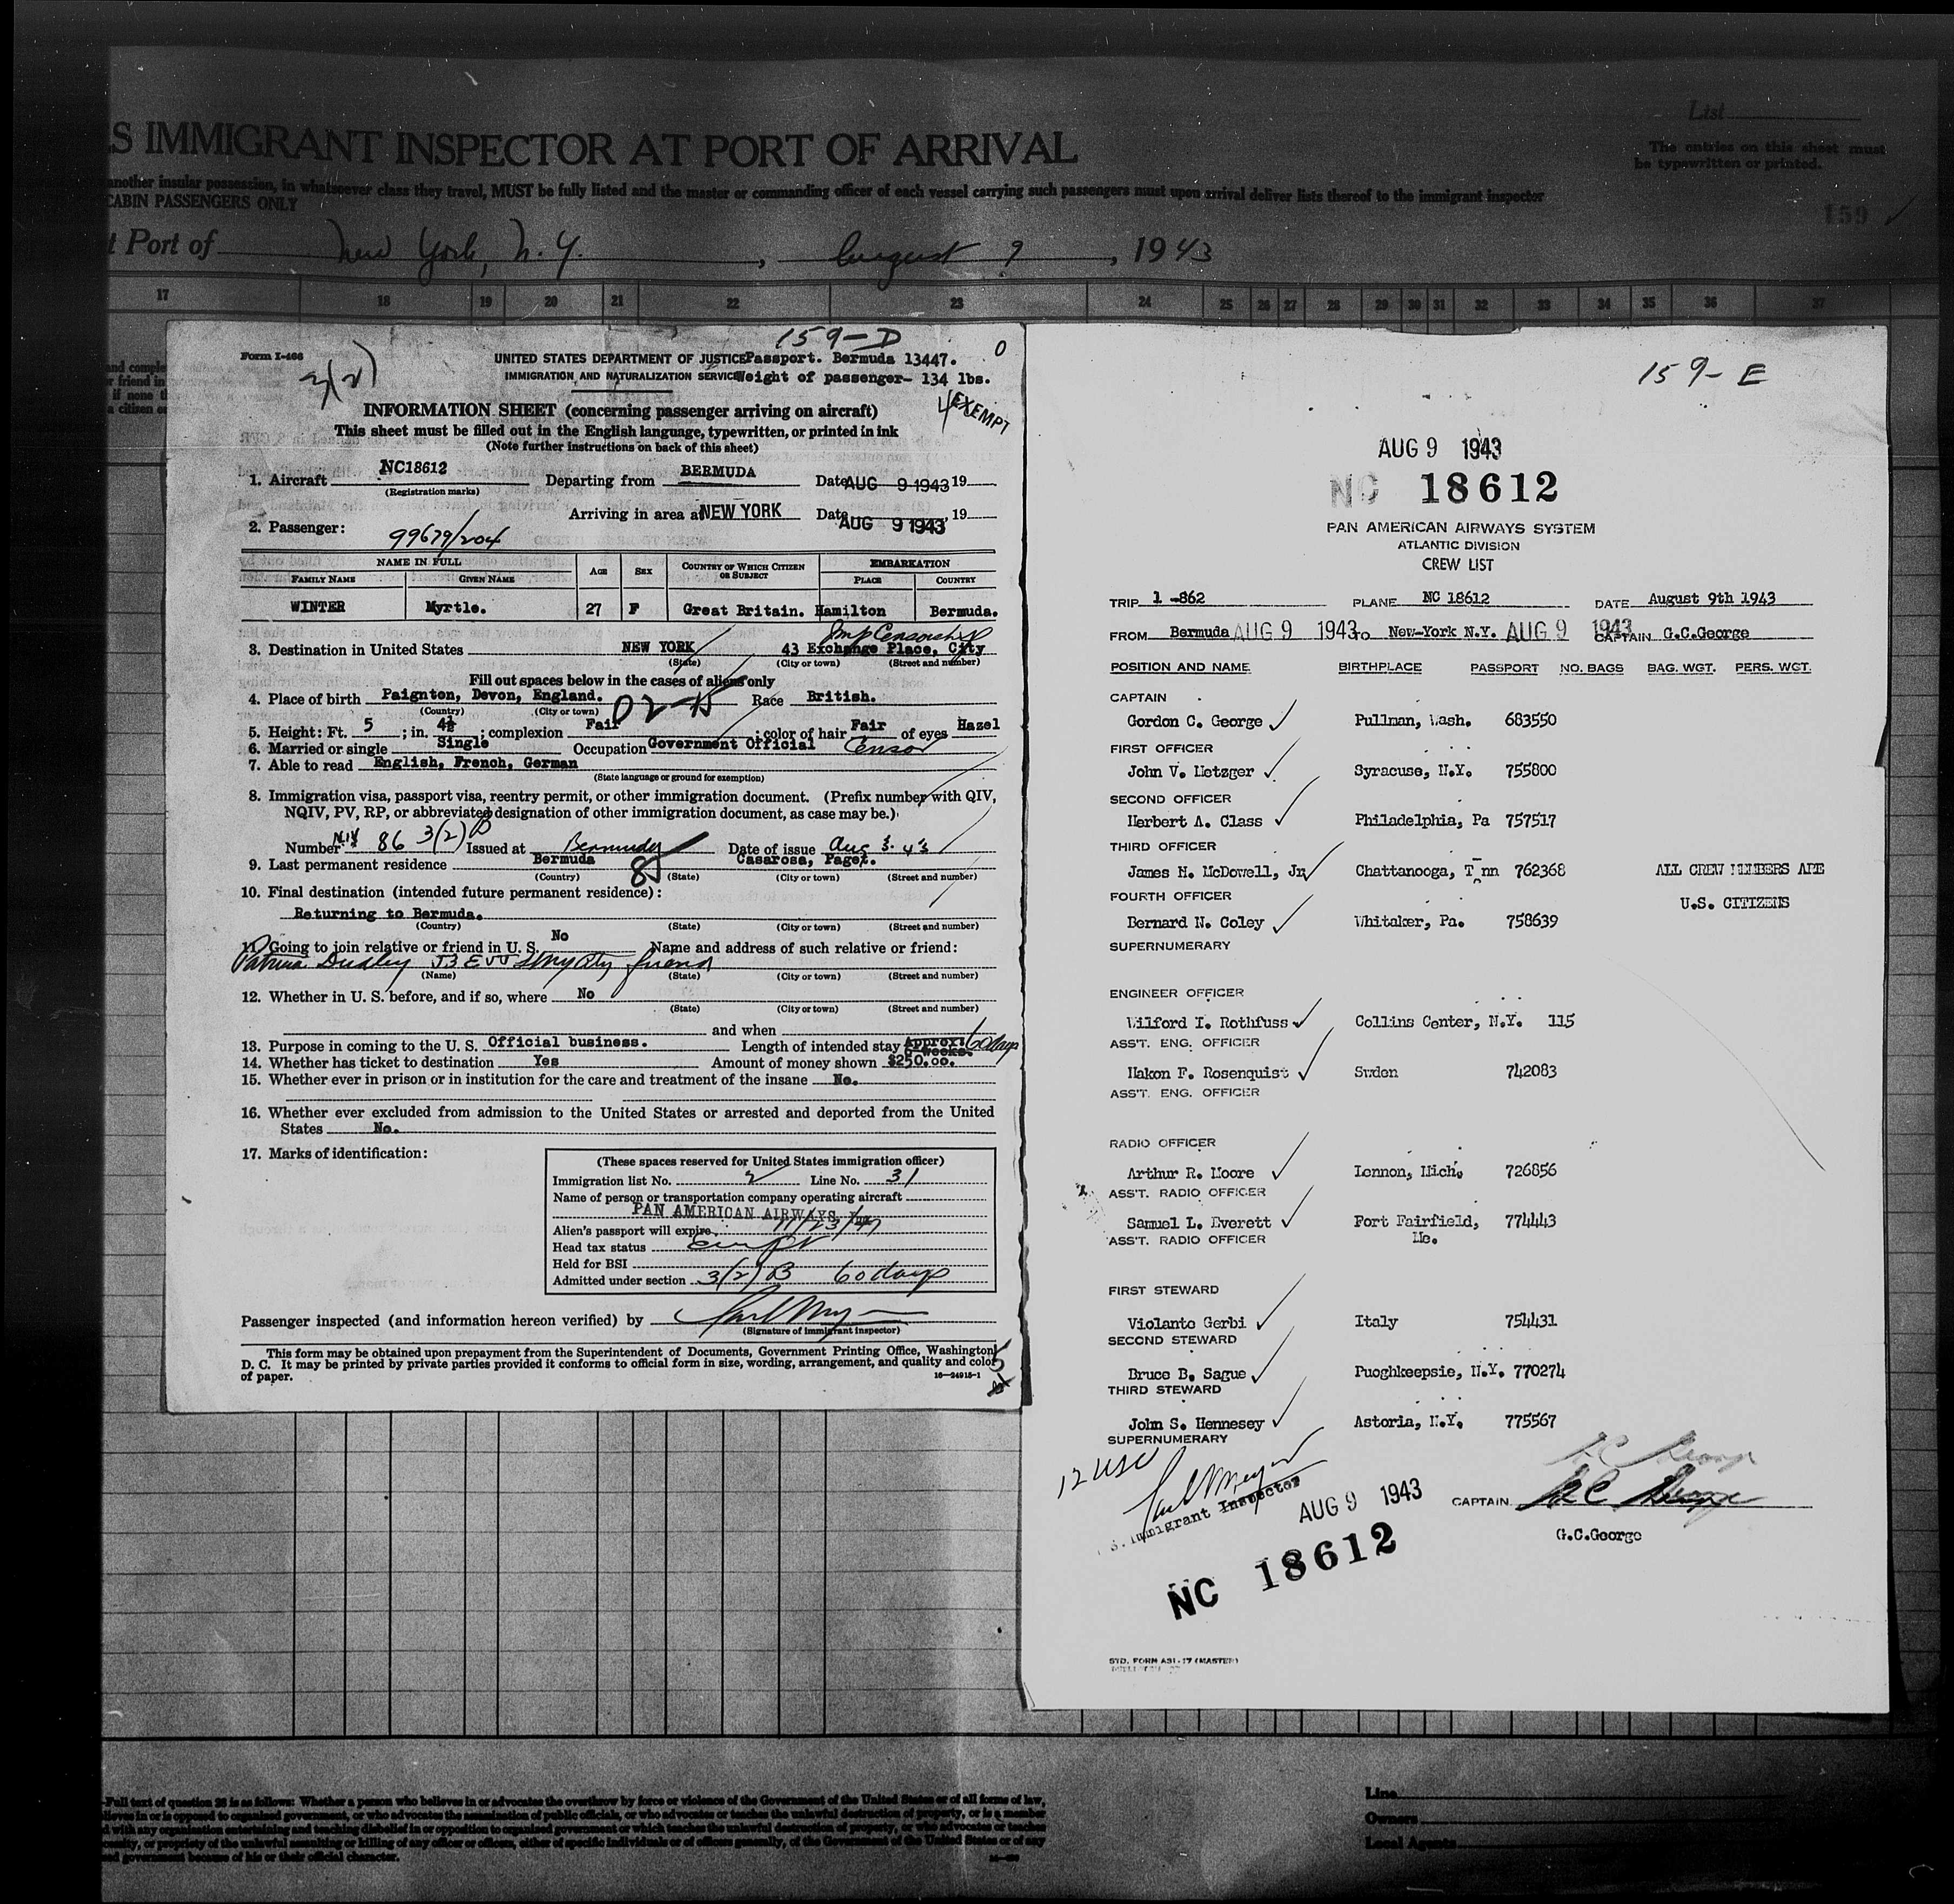 S IMMIGRANT INSPECTOR AT PORT OF ARRIVAL
List
The entries on this sheet must
be typewritten or printed.
another insular possession, in whatsoever class they travel, MUST be fully listed and the master or commanding officer of each vessel carrying such passengers must upon arrival deliver lists thereof to the immigrant inspector
CABIN PASSENGERS ONLY
159
t Port of New York, N.Y., August 9, 1943
17 18 19 20 21 22 23 24 25 26 27 28 29 30 31 32 33 34 35 36 37
159-D
Form I-466
3(2)
UNITED STATES DEPARTMENT OF JUSTICE Passport. Bermuda 13447.
0
IMMIGRATION AND NATURALIZATION SERVICE Weight of passenger- 134 lbs.
EXEMPT
INFORMATION SHEET (concerning passenger arriving on aircraft)
This sheet must be filled out in the English language, typewritten, or printed in ink
(Note further instructions on back of this sheet)
1. Aircraft NC18612 Departing from BERMUDA Date AUG 9 1943 19
(Registration marks)
Arriving in area at NEW YORK Date AUG 9 1943, 19
2. Passenger: 99679/204
NAME IN FULL AGE SEX COUNTRY OF WHICH CITIZEN OR SUBJECT EMBARKATION
FAMILY NAME GIVEN NAME PLACE COUNTRY
WINTER Myrtle. 27 F Great Britain. Hamilton Bermuda.
Imp Censorship
3. Destination in United States NEW YORK 43 Exchange Place, City
(State) (City or town) (Street and number)
Fill out spaces below in the cases of aliens only
4. Place of birth Paignton, Devon, England. Race British.
(Country) (City or town)
5. Height: Ft. 5; in. 4½; complexion Fair; color of hair Fair of eyes Hazel
6. Married or single Single Occupation Government Official Censor
7. Able to read English, French, German
(State language or ground for exemption)
8. Immigration visa, passport visa, reentry permit, or other immigration document. (Prefix number with QIV,
NQIV, PV, RP, or abbreviated designation of other immigration document, as case may be.)
Number NIV 86 3(2) B Issued at Bermuda Date of issue Aug 3. 43
9. Last permanent residence Bermuda Casarosa, Paget.
85
(Country) (State) (City or town) (Street and number)
10. Final destination (intended future permanent residence):
Returning to Bermuda.
(Country) (State) (City or town) (Street and number)
11. Going to join relative or friend in U. S. No Name and address of such relative or friend:
Patricia Dudley friend
(Name) (State) (City or town) (Street and number)
12. Whether in U. S. before, and if so, where No
(State) (City or town) (Street and number)
and when
13. Purpose in coming to the U. S. Official business. Length of intended stay Approx: 6 weeks. 60 days
14. Whether has ticket to destination Yes Amount of money shown $250.00.
15. Whether ever in prison or in institution for the care and treatment of the insane No.
16. Whether ever excluded from admission to the United States or arrested and deported from the United
States No.
17. Marks of identification:
(These spaces reserved for United States immigration officer)
Immigration list No. 2 Line No. 31
Name of person or transportation company operating aircraft
PAN AMERICAN AIRWAYS, Inc.
Alien's passport will expire 11/23/47
Head tax status exempt
Held for BSI
Admitted under section 3(2) B 60 days
Passenger inspected (and information hereon verified) by
(Signature of immigrant inspector)
This form may be obtained upon prepayment from the Superintendent of Documents, Government Printing Office, Washington,
D. C. It may be printed by private parties provided it conforms to official form in size, wording, arrangement, and quality and color
of paper.
16—24915-1
159-E
AUG 9 1943
NC 18612
PAN AMERICAN AIRWAYS SYSTEM
ATLANTIC DIVISION
CREW LIST
TRIP 1-862 PLANE NC 18612 DATE August 9th 1943
FROM Bermuda AUG 9 1943 TO New-York N.Y. AUG 9 1943 CAPTAIN G.C.George
POSITION AND NAME BIRTHPLACE PASSPORT NO. BAGS BAG. WGT. PERS. WGT.
CAPTAIN
Gordon C. George Pullman, Wash. 683550
FIRST OFFICER
John V. Metzger Syracuse, N.Y. 755800
SECOND OFFICER
Herbert A. Class Philadelphia, Pa 757517
THIRD OFFICER
James H. McDowell, Jr Chattanooga, Tenn 762368
ALL CREW MEMBERS ARE
FOURTH OFFICER
U.S. CITIZENS
Bernard N. Coley Whitaker, Pa. 758639
SUPERNUMERARY
ENGINEER OFFICER
Wilford I. Rothfuss Collins Center, N.Y. 115
ASS'T. ENG. OFFICER
Hakon F. Rosenquist Swden 742083
ASS'T. ENG. OFFICER
RADIO OFFICER
Arthur R. Moore Lennon, Mich. 726856
ASS'T. RADIO OFFICER
Samuel L. Everett Fort Fairfield, Me. 774443
ASS'T. RADIO OFFICER
FIRST STEWARD
Violanto Gerbi Italy 754431
SECOND STEWARD
Bruce B. Sague Puoghkeepsie, N.Y. 770274
THIRD STEWARD
John S. Hennesey Astoria, N.Y. 775567
SUPERNUMERARY
12 USC
Immigrant Inspector
AUG 9 1943
CAPTAIN G C George
G.C.George
NC 18612
STD. FORM A31-17 (MASTER)
Full text of question 26 is as follows: Whether a person who believes in or advocates the overthrow by force or violence of the Government of the United States or of all forms of law,
Line
Owners
Local Agents